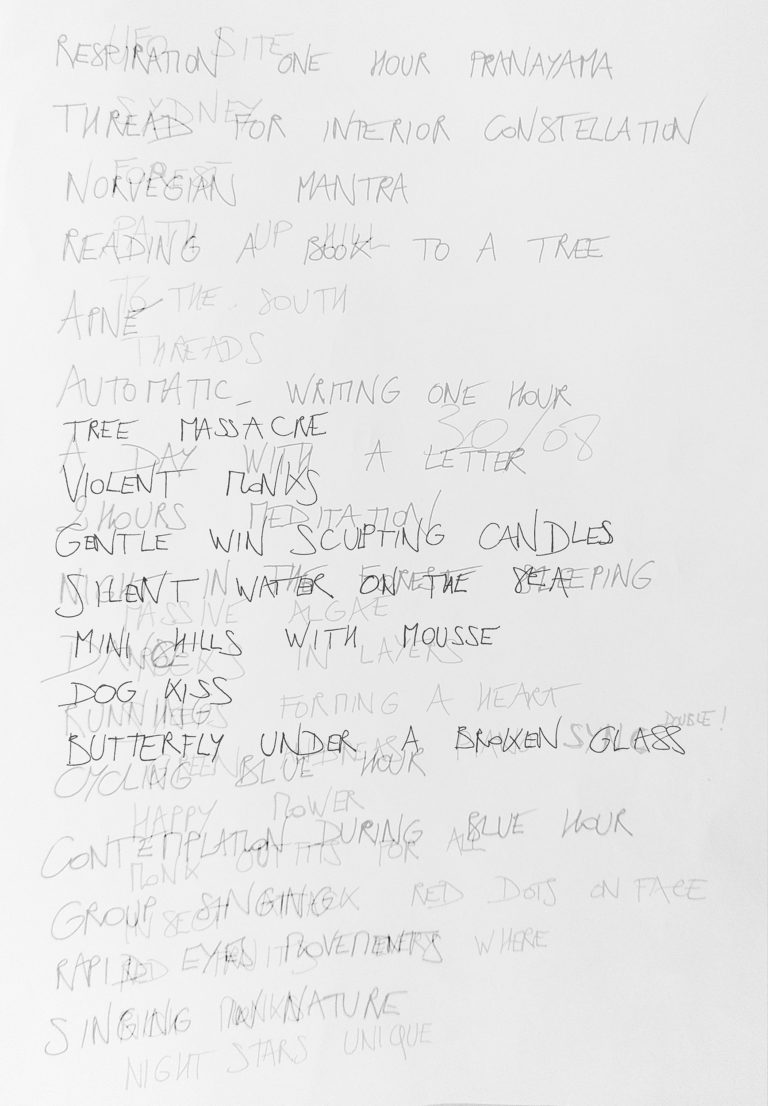 UFO SITE
RESPIRATION ONE HOUR PRANAYAMA
SYDNEY
THREAD FOR INTERIOR CONSTELLATION
FOREST
NORVEGIAN MANTRA
PATH UP HILL
READING A BOOK TO A TREE
TO THE SOUTH
APNÉ
THREADS
AUTOMATIC_ WRITING ONE HOUR
30/08
TREE MASSACRE
A DAY WITH A LETTER
VIOLENT MONKS
2 HOURS MEDITATION
GENTLE WIN SCULPTING CANDLES
NIGHT IN THE FOREST SLEEPING
SILENT WATTER ON THE SEA
PASSIVE ALGAE
MINI HILLS WITH MOUSSE
IN LAYERS
DOG KISS
RUNNING
FORMING A HEART
DOUBLE!
BUTTERFLY UNDER A BROKEN GLASS
CYCLING BLUE HOUR
HAPPY MOWER
CONTEMPLATION DURING BLUE HOUR
OUTFITS FOR ALL
MONK
GROUP SINGING
INSECT RED DOTS ON FACE
RAPID EYES MOVEMENTS
WHERE
SINGING IN NATURE
NIGHT STARS UNIQUE